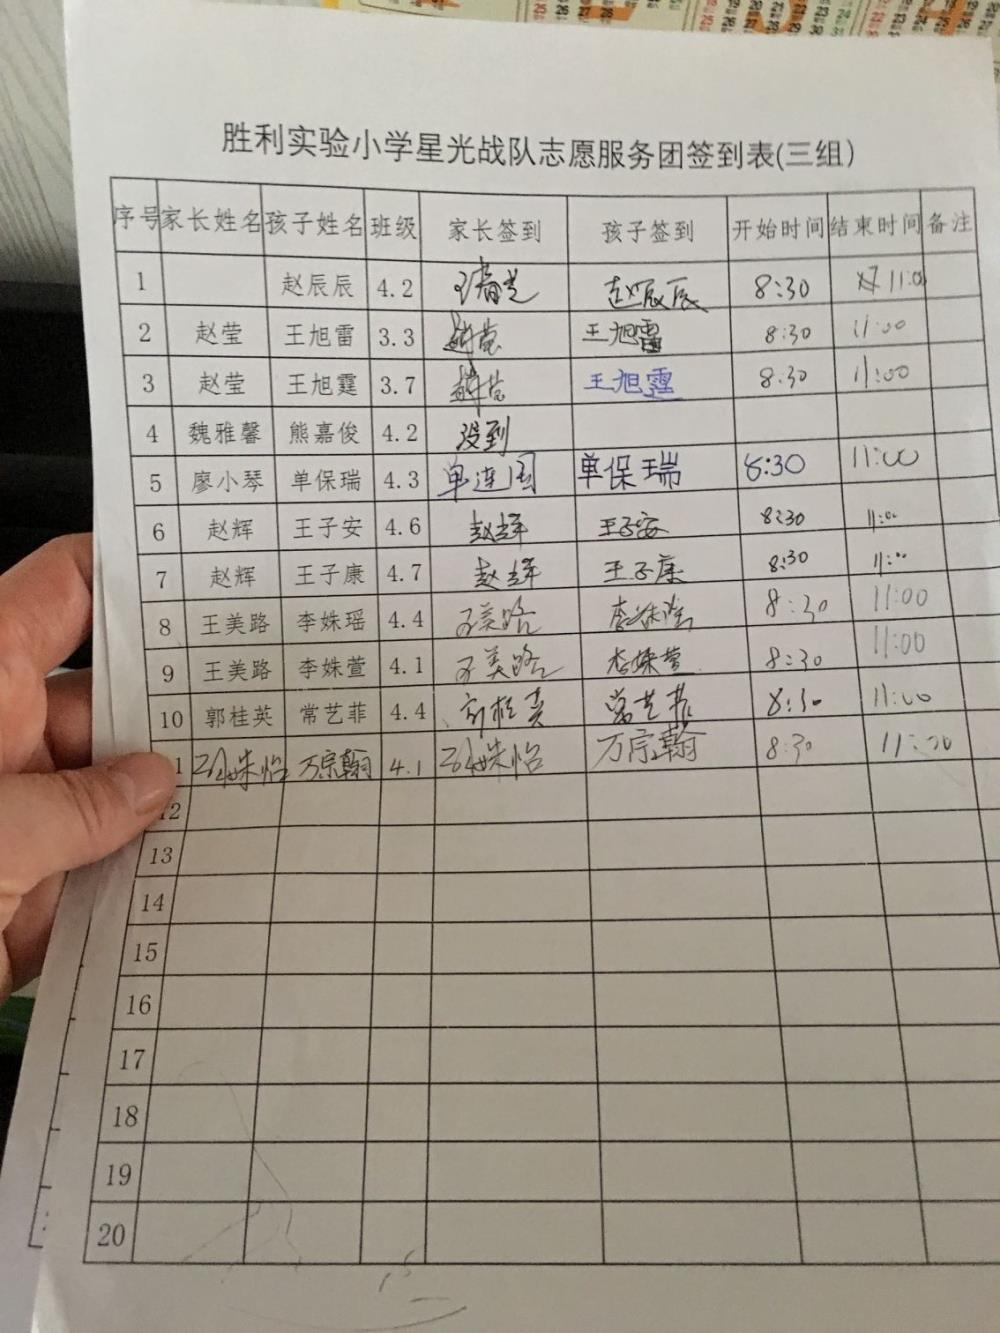 胜利实验小学星光战队志愿服务团签到表(三组)
序号 家长姓名 孩子姓名 班级 家长签到 孩子签到 开始时间 结束时间 备注
1 赵辰辰 4.2 赵辰辰 8:30 11:00
2 赵莹 王旭雷 3.3 赵莹 王旭雷 8:30 11:00
3 赵莹 王旭霆 3.7 赵莹 王旭霆 8:30 11:00
4 魏雅馨 熊嘉俊 4.2 没到
5 廖小琴 单保瑞 4.3 单连国 单保瑞 8:30 11:00
6 赵辉 王子安 4.6 赵辉 王子安 8:30 11:00
7 赵辉 王子康 4.7 赵辉 王子康 8:30 11:00
8 王美路 李姝瑶 4.4 王美路 李姝瑶 8:30 11:00
9 王美路 李姝萱 4.1 王美路 李姝萱 8:30 11:00
10 郭桂英 常艺菲 4.4 郭桂英 常艺菲 8:30 11:00
1 姝怡 万宗翰 4.1 姝怡 万宗翰 8:30 11:00
12
13
14
15
16
17
18
19
20